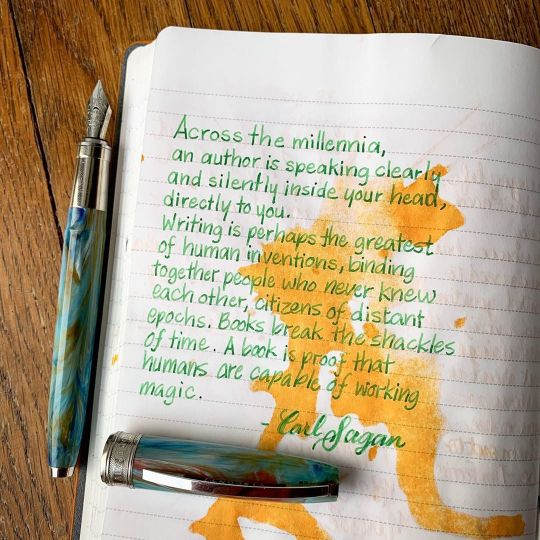 Across the millennia,
an author is speaking clearly
and silently inside your head,
directly to you.
Writing is perhaps the greatest
of human inventions, binding
together people who never knew
each other, citizens of distant
epochs. Books break the shackles
of time. A book is proof that
humans are capable of working
magic.
- Carl Sagan